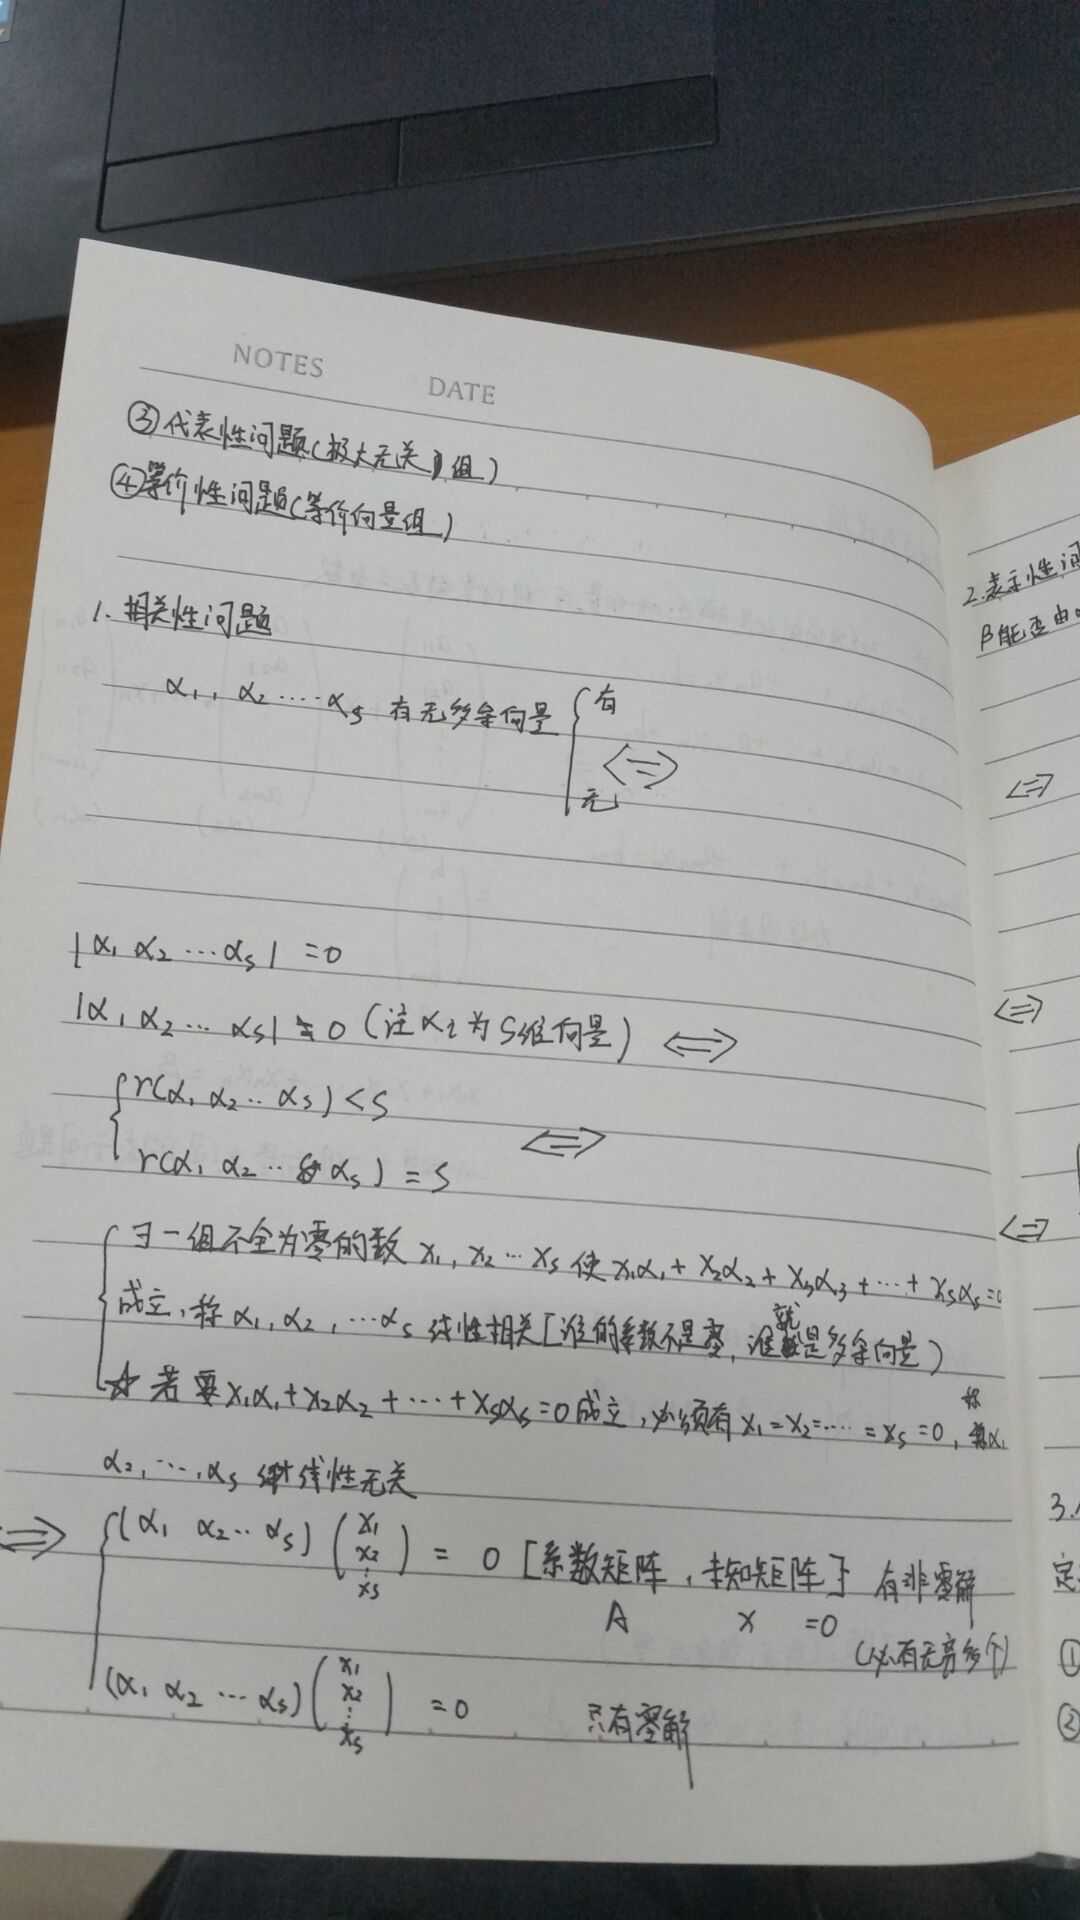 NOTES DATE
③代表性问题(极大无关组)
④等价性问题(等价向量组)
1.相关性问题
α₁, α₂ ····αₛ 有无多余向量 { 有
<=>
无
|α₁ α₂ ···αₛ| =0
|α₁ α₂ ··· αₛ| ≠ 0 (注αᵢ为S维向量) <=>
{ r(α₁ α₂ ·· αₛ) < S
<=>
r(α₁ α₂ ·· αₛ) = S
{ ∃一组不全为零的数 x₁, x₂ ··· xₛ 使 x₁α₁ + x₂α₂ + x₃α₃ + ··· + xₛαₛ=0
成立, 称 α₁, α₂, ···αₛ 线性相关[谁的系数不是零, 谁就是多余向量)
☆ 若要 x₁α₁+x₂α₂+···+xₛαₛ=0成立, 必须有 x₁=x₂=····=xₛ=0, 称α₁
α₂, ···, αₛ 线性无关
<=> { (α₁ α₂·· αₛ) (x₁ x₂ ⋮ xₛ) = 0 [系数矩阵, 未知矩阵] 有非零解
A x =0
(必有无穷多个)
(α₁ α₂ ··· αₛ) (x₁ x₂ ⋮ xₛ) =0 只有零解
2.表示性问
β能否由
<=>
<=>
<=>
3.
定
①
②